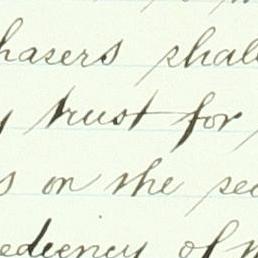 hasers shall
y trust for
s on the sec
ediency of